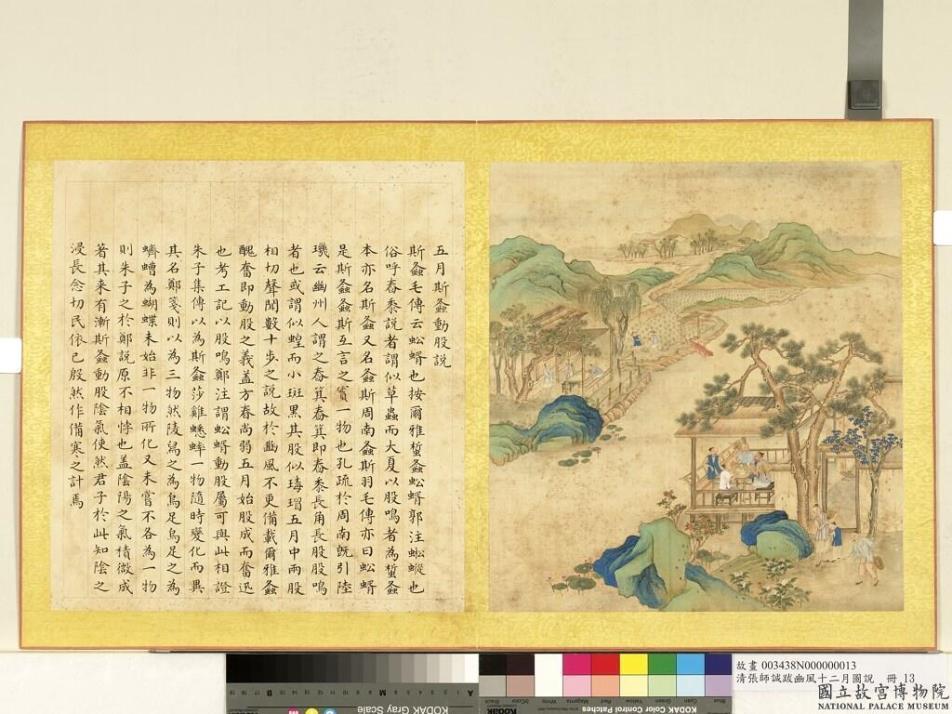 五月斯螽動股說
斯螽毛傳云蚣蝑也按爾雅蜤螽蚣蝑郭注蚣蝑也
俗呼舂黍說者謂似草蟲而大夏以股鳴者為蜤螽
本亦名斯螽又名螽斯周南螽斯羽毛傳亦曰蚣蝑
是斯螽螽斯互言之實一物也孔疏於周南既引陸
璣云幽州人謂之舂箕舂箕即舂黍長角長股股鳴
者也或謂似蝗而小斑黑其股似瑇瑁五月中兩股
相切聲聞數十步之說故於豳風不更備載爾雅螽
醜奮即動股之義蓋方春尚弱五月始股成而奮迅
也考工記以股鳴鄭注謂蚣蝑動股屬可與此相證
朱子集傳以為斯螽莎雞蟋蟀一物隨時變化而異
其名鄭箋則以為三物然陵舃之為烏足烏足之為
蠐螬為蝴蝶未始非一物所化又未嘗不各為一物
則朱子之於鄭說原不相悖也蓋陰陽之氣積微成
著其來有漸斯螽動股陰氣使然君子於此知陰之
浸長念切民依已殷然作備寒之計焉
故畫 003438N000000013
清張師誠跋豳風十二月圖說 冊 13
國立故宮博物院
NATIONAL PALACE MUSEUM
KODAK Gray Scale
KODAK Color Control Patches